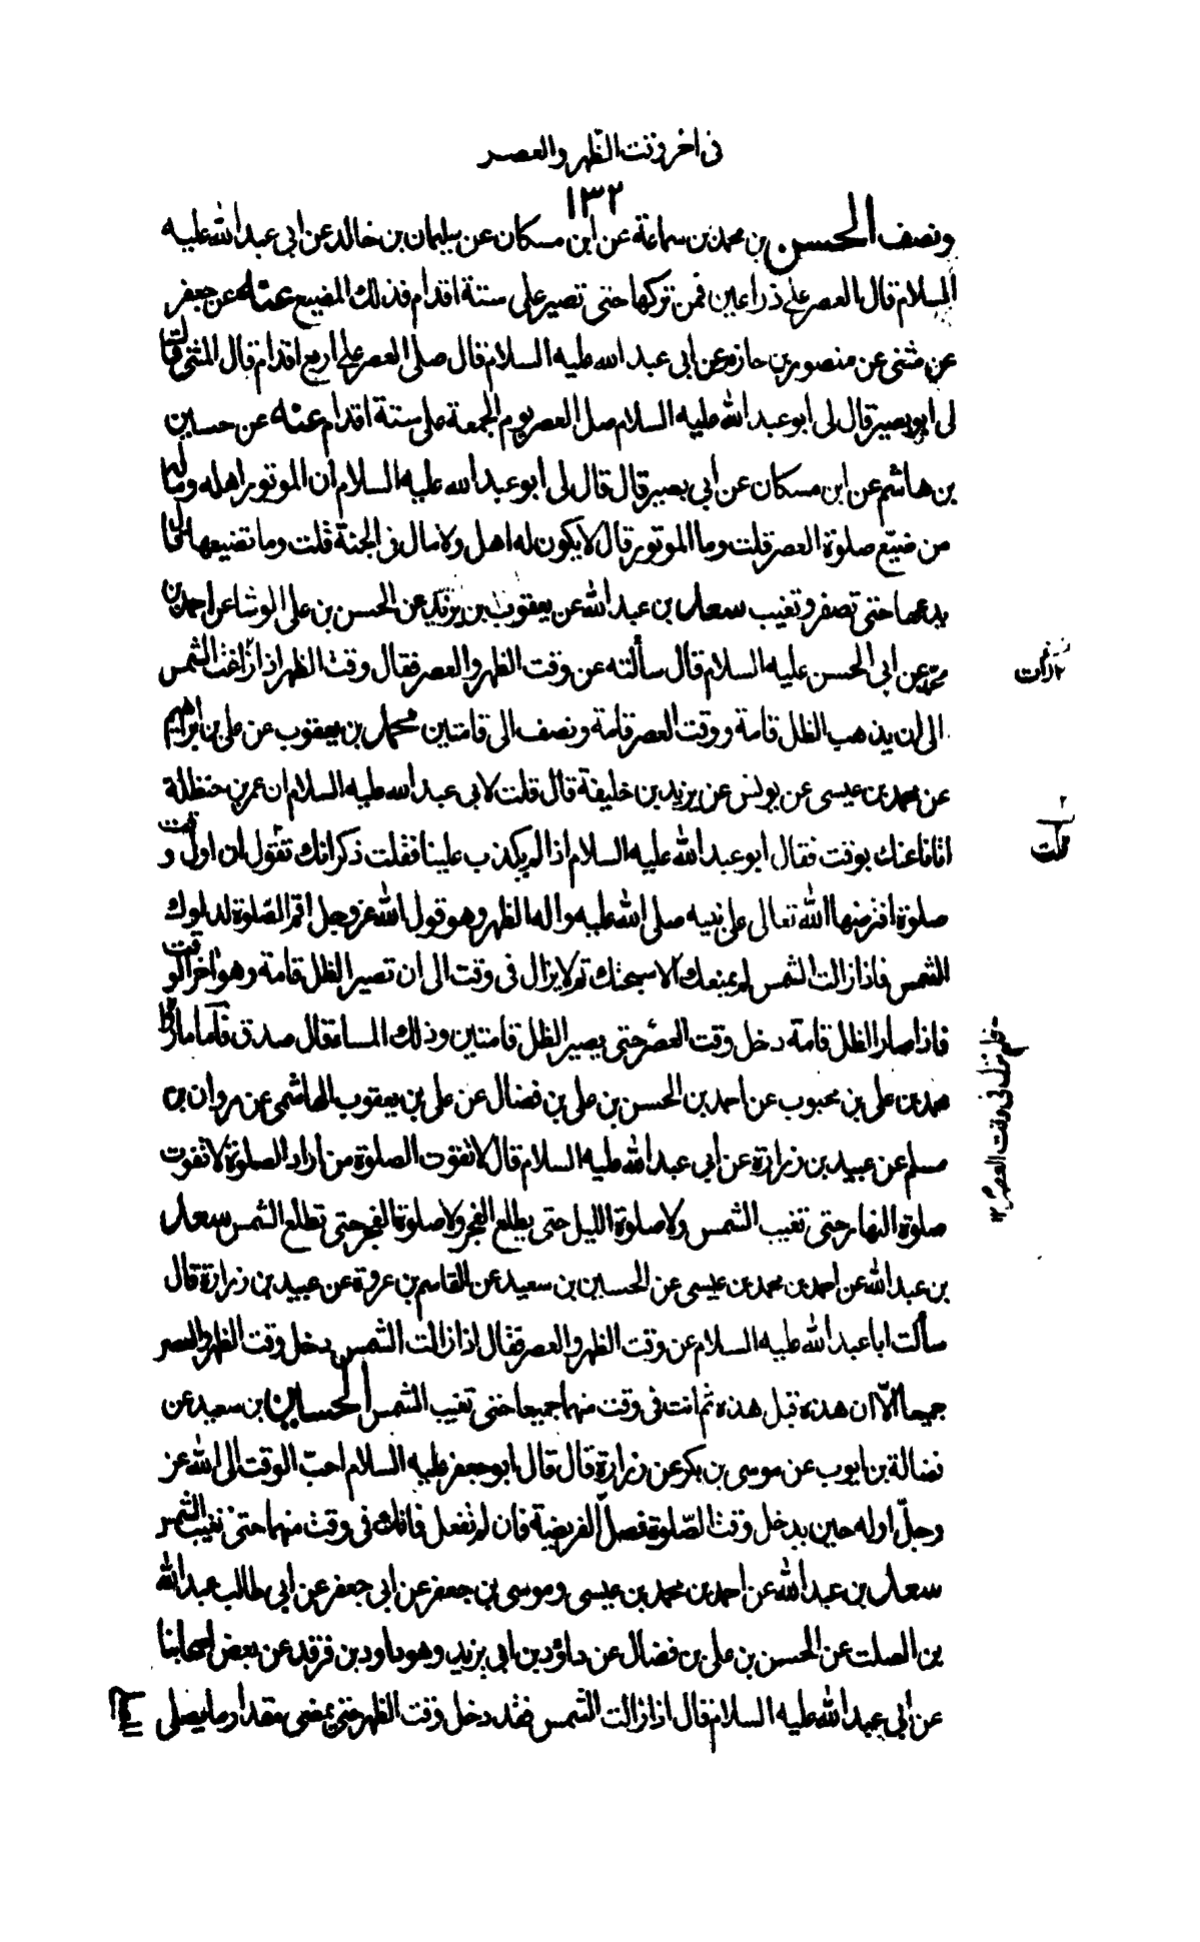 فى اخر وقت الظهر والعصر
١٣٢
ونصف الحسن بن محمد بن سماعة عن ابن مسكان عن سليمان بن خالد عن ابى عبد الله عليه
السلام قال العصر على ذراعين فمن تركها حتى تصير على ستة اقدام فذلك المضيع عنه عن جعفر
عن مثنى عن منصور بن حازم عن ابى عبد الله عليه السلام قال صلى العصر على اربع اقدام قال المثنى قال
لى ابو بصير قال لى ابو عبد الله عليه السلام صل العصر يوم الجمعة على ستة اقدام عنه عن حسين
بن هاشم عن ابن مسكان عن ابى بصير قال قال لى ابو عبد الله عليه السلام ان الموتور اهله وماله
من ضيّع صلوة العصر قلت وما الموتور قال لا يكون له اهل ولا مال فى الجنة قلت وما تضيعها قال
يدعها حتى تصفر وتغيب سعد بن عبد الله عن يعقوب بن يزيد عن الحسن بن على الوشا عن احمد بن
عمر عن ابى الحسن عليه السلام قال سألته عن وقت الظهر والعصر فقال وقت الظهر اذا زاغت الشمس
الى ان يذهب الظل قامة ووقت العصر قامة ونصف الى قامتين محمد بن يعقوب عن على بن ابراهيم
عن محمد بن عيسى عن يونس عن يزيد بن خليفة قال قلت لابى عبد الله عليه السلام ان عمر بن حنظلة
اتانا عنك بوقت فقال ابو عبد الله عليه السلام اذا لم يكذب علينا فقلت ذكر انك تقول ان اول وقت
صلوة افترضها الله تعالى على نبيه صلى الله عليه واله الظهر وهو قول الله عز وجل اقم الصّلوة لدلوك
الشمس فاذا زالت الشمس لم يمنعك الا سبحتك ثم لا يزال فى وقت الى ان تصير الظل قامة وهو اخر الوقت
فاذا صار الظل قامة دخل وقت العصر حتى يصير الظل قامتين وذلك المساء قال صدق فاما ما رواه
محمد بن على بن محبوب عن احمد بن الحسن بن على بن فضال عن على بن يعقوب الهاشمى عن مروان بن
مسلم عن عبيد بن زرارة عن ابى عبد الله عليه السلام قال لا تفوت الصلوة من اراد الصلوة لا تفوت
صلوة النهار حتى تغيب الشمس ولا صلوة الليل حتى يطلع الفجر ولا صلوة الفجر حتى تطلع الشمس سعد
بن عبد الله عن احمد بن محمد بن عيسى عن الحسين بن سعيد عن القاسم بن عروة عن عبيد بن زرارة قال
سألت ابا عبد الله عليه السلام عن وقت الظهر والعصر فقال اذا زالت الشمس دخل وقت الظهر والعصر
جميعا الاّ ان هذه قبل هذه ثم انت فى وقت منهما جميعا حتى تغيب الشمس الحسين بن سعيد عن
فضالة بن ايوب عن موسى بن بكر عن زرارة قال قال ابو جعفر عليه السلام احبّ الوقت الى الله عز
وجلّ اوله حين يدخل وقت الصّلوة فصل الفريضة فان لم تفعل فانك فى وقت منهما حتى تغيب الشمس
سعد بن عبد الله عن احمد بن محمد بن عيسى وموسى بن جعفر عن ابى جعفر عن ابى طالب عبد الله
بن الصلت عن الحسن بن على بن فضال عن داؤد بن ابى يزيد وهو داود بن فرقد عن بعض اصحابنا
عن ابى عبد الله عليه السلام قال اذا زالت الشمس فقد دخل وقت الظهر حتى يمضى مقدار ما يصلى
قلت
فلم تزل فى وقت العصر